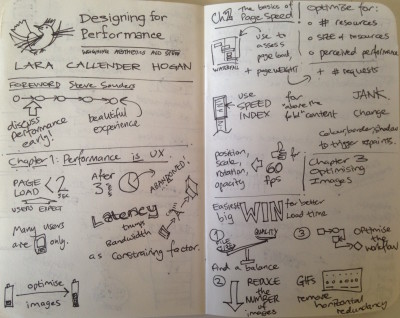 Designing for
Performance
WEIGHING AESTHETICS AND SPEED
LARA CALLENDER HOGAN
FOREWORD Steve Souders
discuss
performance
early!
beautiful
experience.
Chapter 1: Performance is UX
PAGE
LOAD < 2 sec
USERS EXPECT
After
3s
ABANDONED!
Many users
are only.
Latency
trumps
Bandwidth
as constraining factor.
optimise
images
Ch2 the basics of
Page Speed
WATERFALL
use to
assess
page load
+ page WEIGHT
Optimise for:
○ # resources
○ SIZE of resources
○ perceived performance
+ # requests
USE
SPEED
INDEX
for
"above the
fold" content
JANK
Change
colour/border/shadow
to trigger repaints.
position,
scale,
rotation,
opacity
60
fps
Chapter 3
Optimising
Images
Easiest
big WIN for better
Load time
① FILE
SIZE
QUALITY
Find a balance
② REDUCE
the
NUMBER
of images
③ OPTIMISE
the
workflow
GIFs
remove
horizontal
redundancy